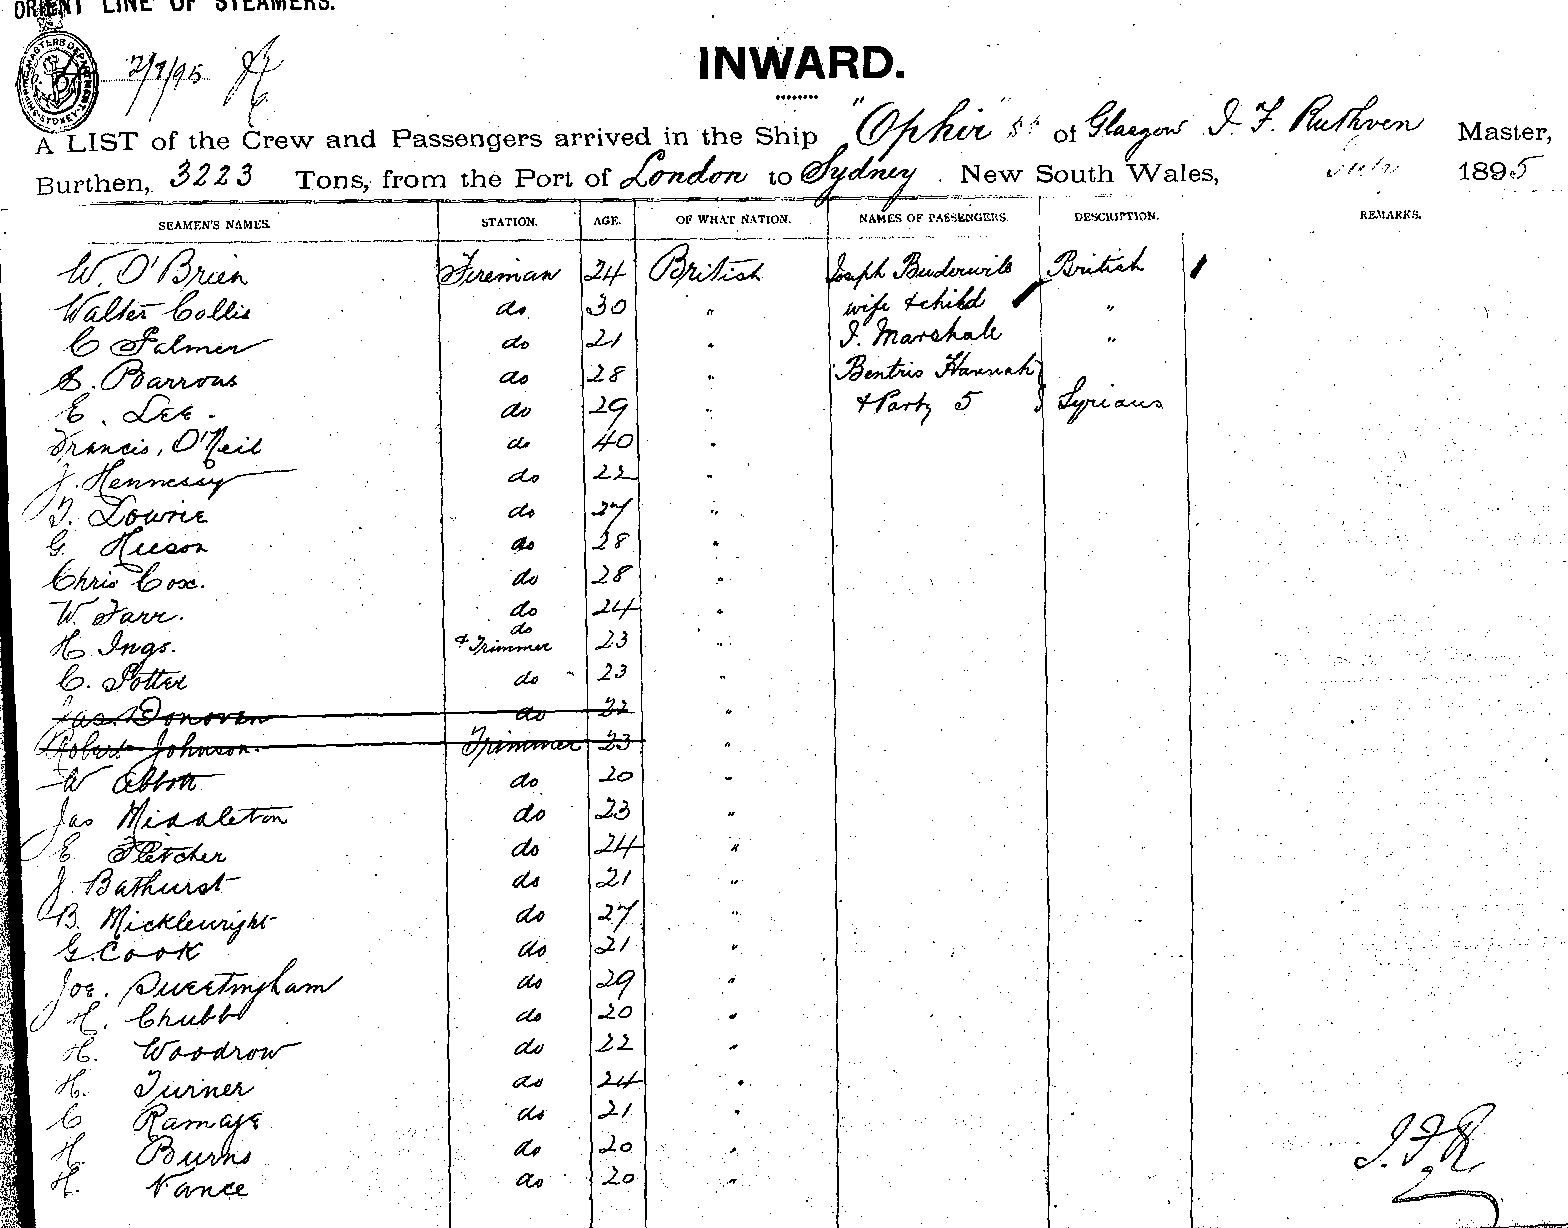 ORIENT LINE OF STEAMERS.
2/7/95
INWARD.
A LIST of the Crew and Passengers arrived in the Ship "Ophir" SS of Glasgow J. F. Ruthven Master,
Burthen, 3223 Tons, from the Port of London to Sydney. New South Wales, July 1895
SEAMEN'S NAMES. STATION. AGE. OF WHAT NATION. NAMES OF PASSENGERS. DESCRIPTION. REMARKS.
W. O'Brien Fireman 24 British Joseph British
Walter Collis do 30 " wife & child "
C Palmer do 21 " J. Marshall "
S. Barrows do 28 " Hannah
E. Lee. do 29 " & Party 5 Syrians
Francis, O'Neil do 40 "
J. Hennessy do 22 "
T. Lowrie do 27 "
G. do 28 "
Chris Cox. do 28 "
W. Farr. do 24 "
H Ings. do & Trimmer 23 "
C. Potter do 23 "
Jas. Donovan do 22 "
Robert Johnson. Trimmer 23 "
W Abbott do 20 "
Jas Middleton do 23 "
E. Fletcher do 24 "
J. Bathurst do 21 "
B. Micklewright do 27 "
G. Cook do 21 "
Joe. Sweetingham do 29 "
H. Chubb do 20 "
H. Woodrow do 22 "
H. Turner do 24 "
C Ramage do 21 "
H. Burns do 20 "
H. Vance do 20 "
J.F.R